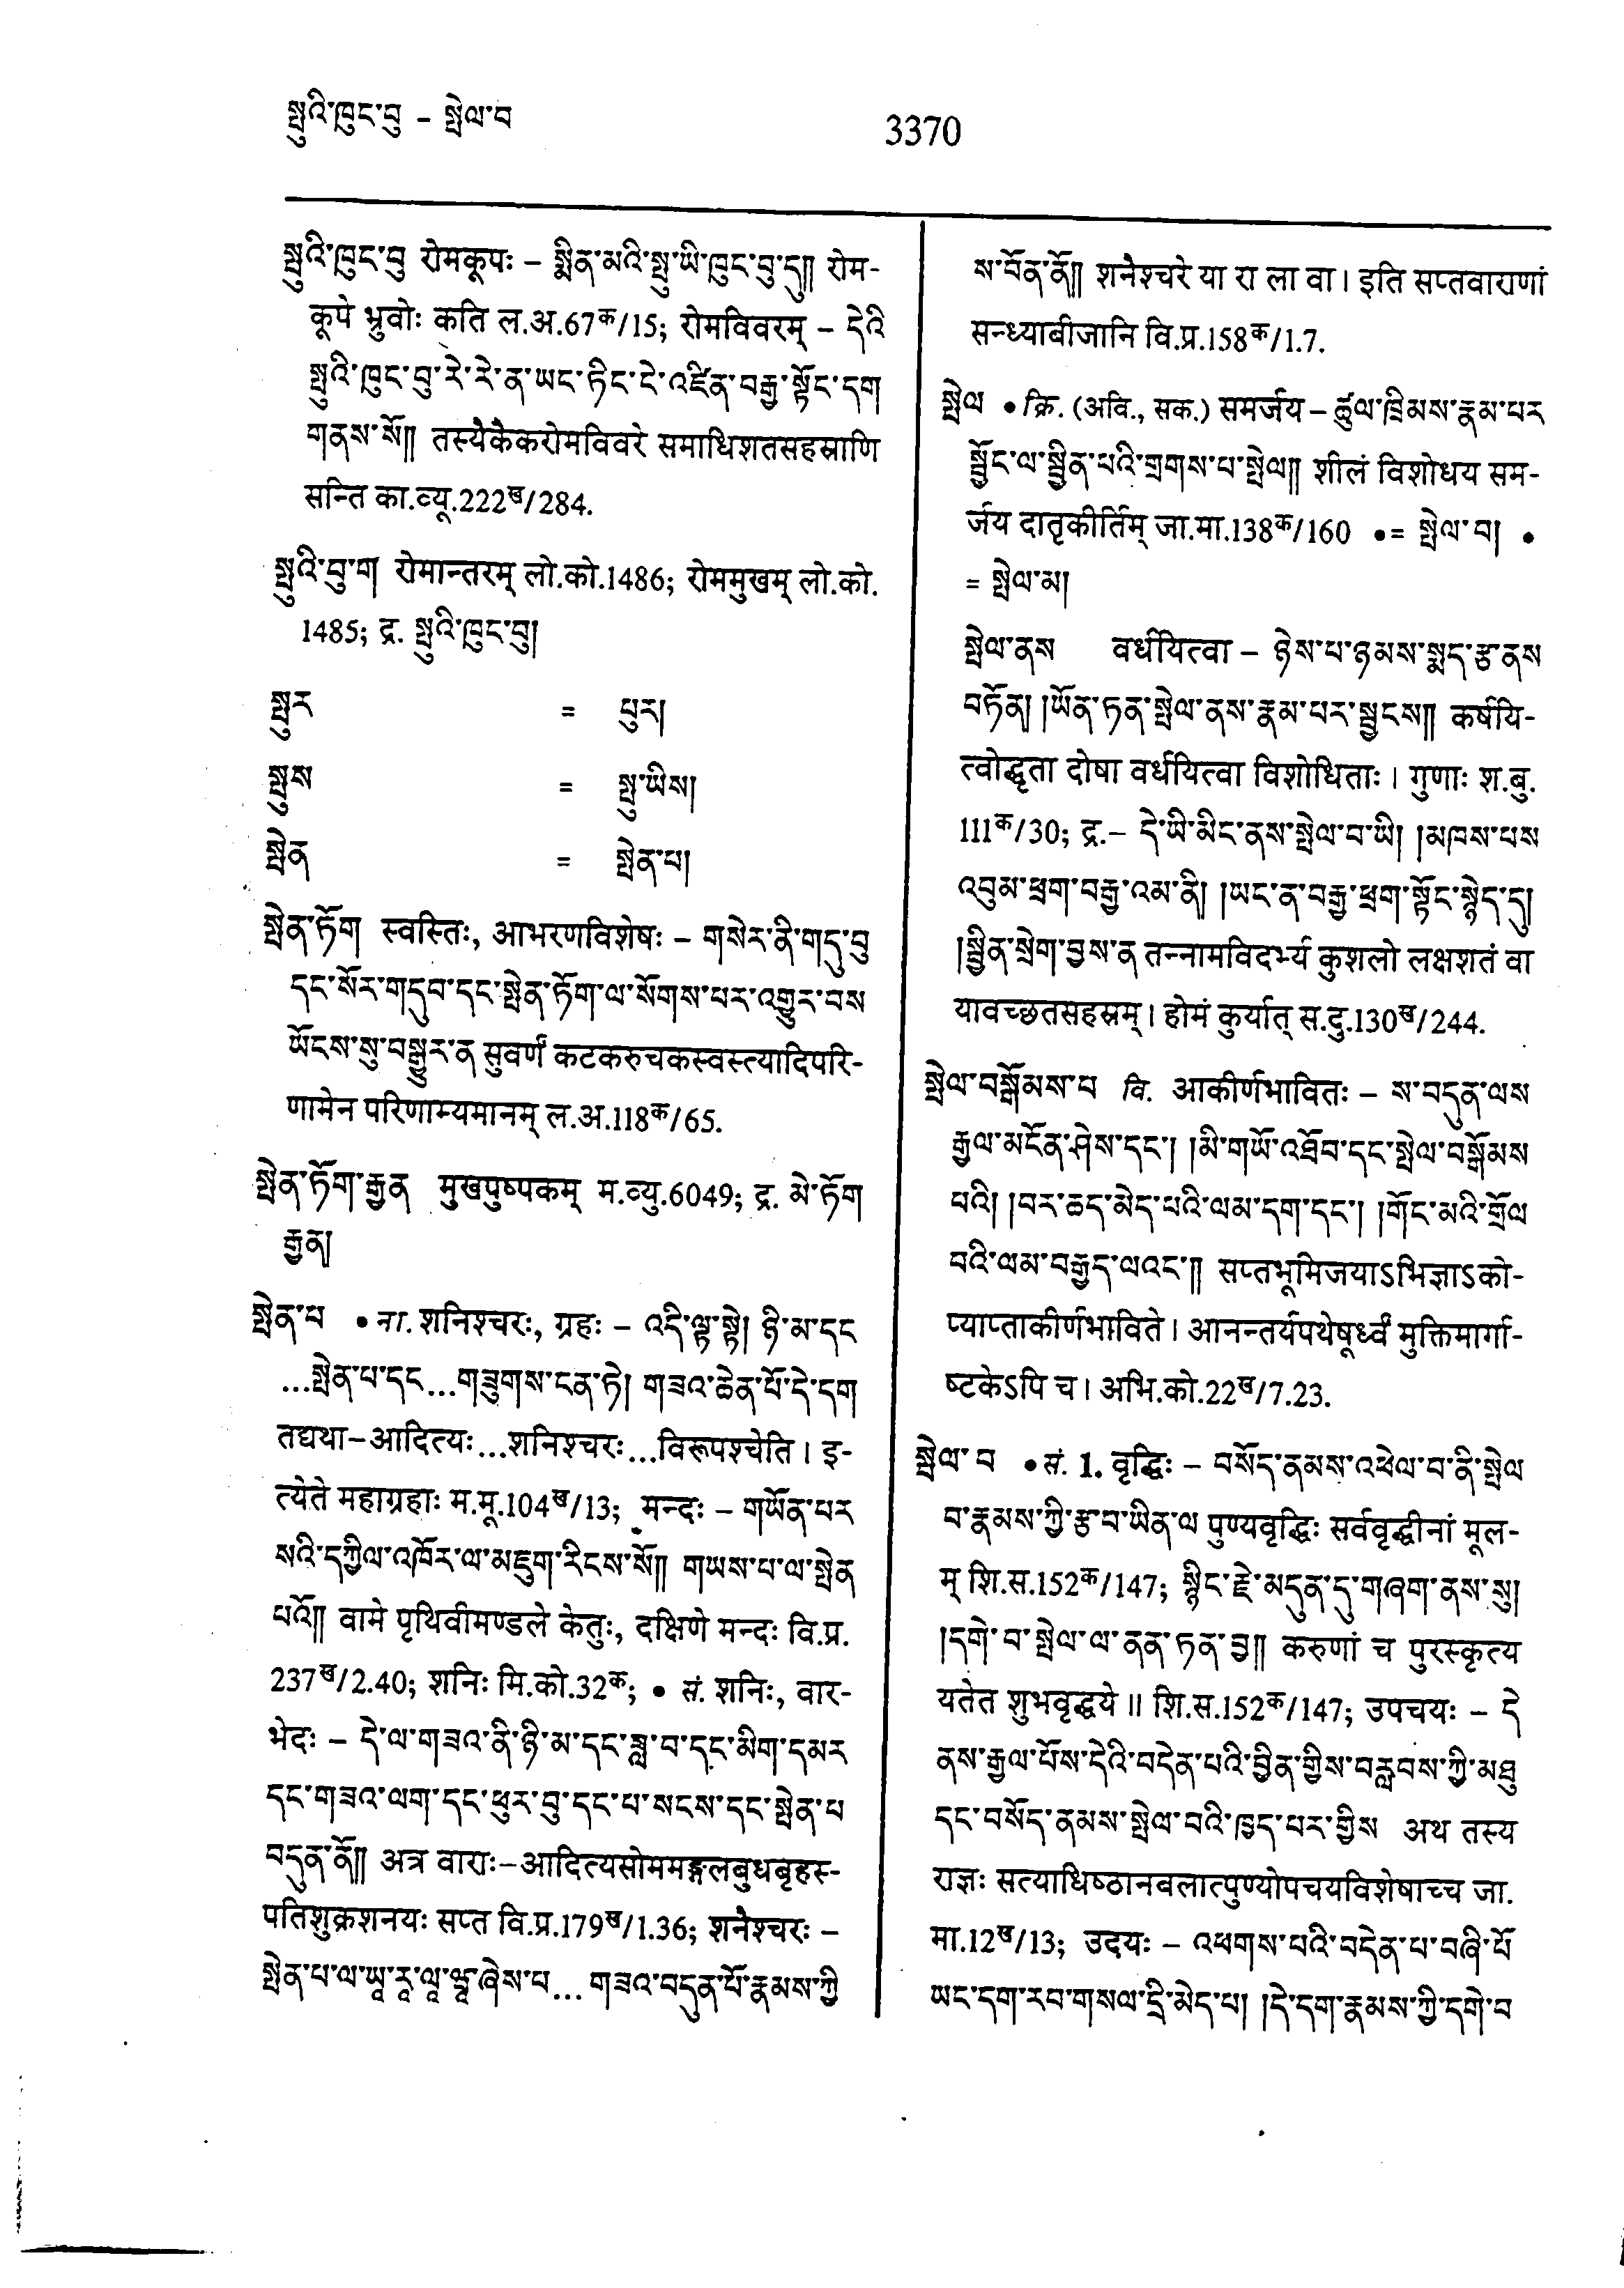 སྤུའི་ཁུང་བུ – སྤེལ་བ
3370
སྤུའི་ཁུང་བུ रोमकूपः – སྨིན་མའི་སྤུ་ཡི་ཁུང་བུ་དུ།། रोम-
कूपे भ्रुवोः कति ल.अ.67क/15; रोमविवरम् – དེའི
སྤུའི་ཁུང་བུ་རེ་རེ་ན་ཡང་ཏིང་ངེ་འཛིན་བརྒྱ་སྟོང་དག
གནས་སོ།། तस्यैकैकरोमविवरे समाधिशतसहस्राणि
सन्ति का.व्यू.222ख/284.
སྤུའི་བུ་ག། रोमान्तरम् लो.को.1486; रोममुखम् लो.को.
1485; द्र. སྤུའི་ཁུང་བུ།
སྤུར = པུར།
སྤུས = སྤུ་ཡིས།
སྤེན = སྤེན་པ།
སྤེན་ཏོག स्वस्तिः, आभरणविशेषः – གསེར་ནི་གདུ་བུ
དང་སོར་གདུབ་དང་སྤེན་ཏོག་ལ་སོགས་པར་འགྱུར་བས
ཡོངས་སུ་བསྒྱུར་ན सुवर्णं कटकरुचकस्वस्त्यादिपरि-
णामेन परिणाम्यमानम् ल.अ.118क/65.
སྤེན་ཏོག་རྒྱན मुखपुष्पकम् म.व्यु.6049; द्र. མེ་ཏོག
རྒྱན།
སྤེན་པ • ना. शनिश्चरः, ग्रहः – འདི་ལྟ་སྟེ། ཉི་མ་དང
...སྤེན་པ་དང...གཟུགས་ངན་ཏེ། གཟའ་ཆེན་པོ་དེ་དག
तद्यथा–आदित्यः...शनिश्चरः...विरूपश्चेति। इ-
त्येते महाग्रहाः म.मू.104ख/13; मन्दः – གཡོན་པར
སའི་དཀྱིལ་འཁོར་ལ་མཇུག་རིངས་སོ།། གཡས་པ་ལ་སྤེན
པའོ།། वामे पृथिवीमण्डले केतुः, दक्षिणे मन्दः वि.प्र.
237ख/2.40; शनिः मि.को.32क; • सं. शनिः, वार-
भेदः – དེ་ལ་གཟའ་ནི་ཉི་མ་དང་ཟླ་བ་དང་མིག་དམར
དང་གཟའ་ལག་དང་ཕུར་བུ་དང་པ་སངས་དང་སྤེན་པ
བདུན་ནོ།། अत्र वाराः–आदित्यसोममङ्गलबुधबृहस्-
पतिशुक्रशनयः सप्त वि.प्र.179ख/1.36; शनैश्चरः –
སྤེན་པ་ལ་ཡཱ་རཱ་ལཱ་ཝཱ་ཞེས་པ... གཟའ་བདུན་པོ་རྣམས་ཀྱི
ས་བོན་ནོ།། शनैश्चरे या रा ला वा। इति सप्तवाराणां
सन्ध्याबीजानि वि.प्र.158क/1.7.
སྤེལ • क्रि. (अवि., सक.) समर्जय – ཚུལ་ཁྲིམས་རྣམ་པར
སྦྱོང་ལ་སྦྱིན་པའི་གྲགས་པ་སྤེལ།། शीलं विशोधय सम-
र्जय दातृकीर्तिम् जा.मा.138क/160 •= སྤེལ་བ། •
= སྤེལ་མ།
སྤེལ་ནས वर्धयित्वा – ཉེས་པ་ཉམས་སྨད་རྩ་ནས
བཏོན། །ཡོན་ཏན་སྤེལ་ནས་རྣམ་པར་སྦྱངས།། कर्षयि-
त्वोद्धृता दोषा वर्धयित्वा विशोधिताः। गुणाः श.बु.
111क/30; द्र.– དེ་ཡི་མིང་ནས་སྤེལ་བ་ཡི། །མཁས་པས
འབུམ་ཕྲག་བརྒྱ་འམ་ནི། །ཡང་ན་བརྒྱ་ཕྲག་སྟོང་སྙེད་དུ།
།སྦྱིན་སྲེག་བྱས་ན तन्नामविदर्भ्य कुशलो लक्षशतं वा
यावच्छतसहस्रम्। होमं कुर्यात् स.दु.130ख/244.
སྤེལ་བསྒོམས་པ वि. आकीर्णभावितः – ས་བདུན་ལས
རྒྱལ་མངོན་ཤེས་དང་། །མི་གཡོ་འཐོབ་དང་སྤེལ་བསྒོམས
པའི། །བར་ཆད་མེད་པའི་ལམ་དག་དང་། །གོང་མའི་གྲོལ
བའི་ལམ་བརྒྱད་ལའང་།། सप्तभूमिजयाऽभिज्ञाऽको-
प्याप्ताकीर्णभाविते। आनन्तर्यपथेषूर्ध्वं मुक्तिमार्गा-
ष्टकेऽपि च। अभि.को.22ख/7.23.
སྤེལ་བ • सं. 1. वृद्धिः – བསོད་ནམས་འཕེལ་བ་ནི་སྤེལ
བ་རྣམས་ཀྱི་རྩ་བ་ཡིན་ལ पुण्यवृद्धिः सर्ववृद्धीनां मूल-
म् शि.स.152क/147; སྙིང་རྗེ་མདུན་དུ་གཞག་ནས་སུ།
།དགེ་བ་སྤེལ་ལ་ནན་ཏན་བྱ།། करुणां च पुरस्कृत्य
यतेत शुभवृद्धये॥ शि.स.152क/147; उपचयः – དེ
ནས་རྒྱལ་པོས་དེའི་བདེན་པའི་བྱིན་གྱིས་བརླབས་ཀྱི་མཐུ
དང་བསོད་ནམས་སྤེལ་བའི་ཁྱད་པར་གྱིས अथ तस्य
राज्ञः सत्याधिष्ठानबलात्पुण्योपचयविशेषाच्च जा.
मा.12ख/13; उदयः – འཕགས་པའི་བདེན་པ་བཞི་པོ
ཡང་དག་རབ་གསལ་དྲི་མེད་པ། །དེ་དག་རྣམས་ཀྱི་དགེ་བ